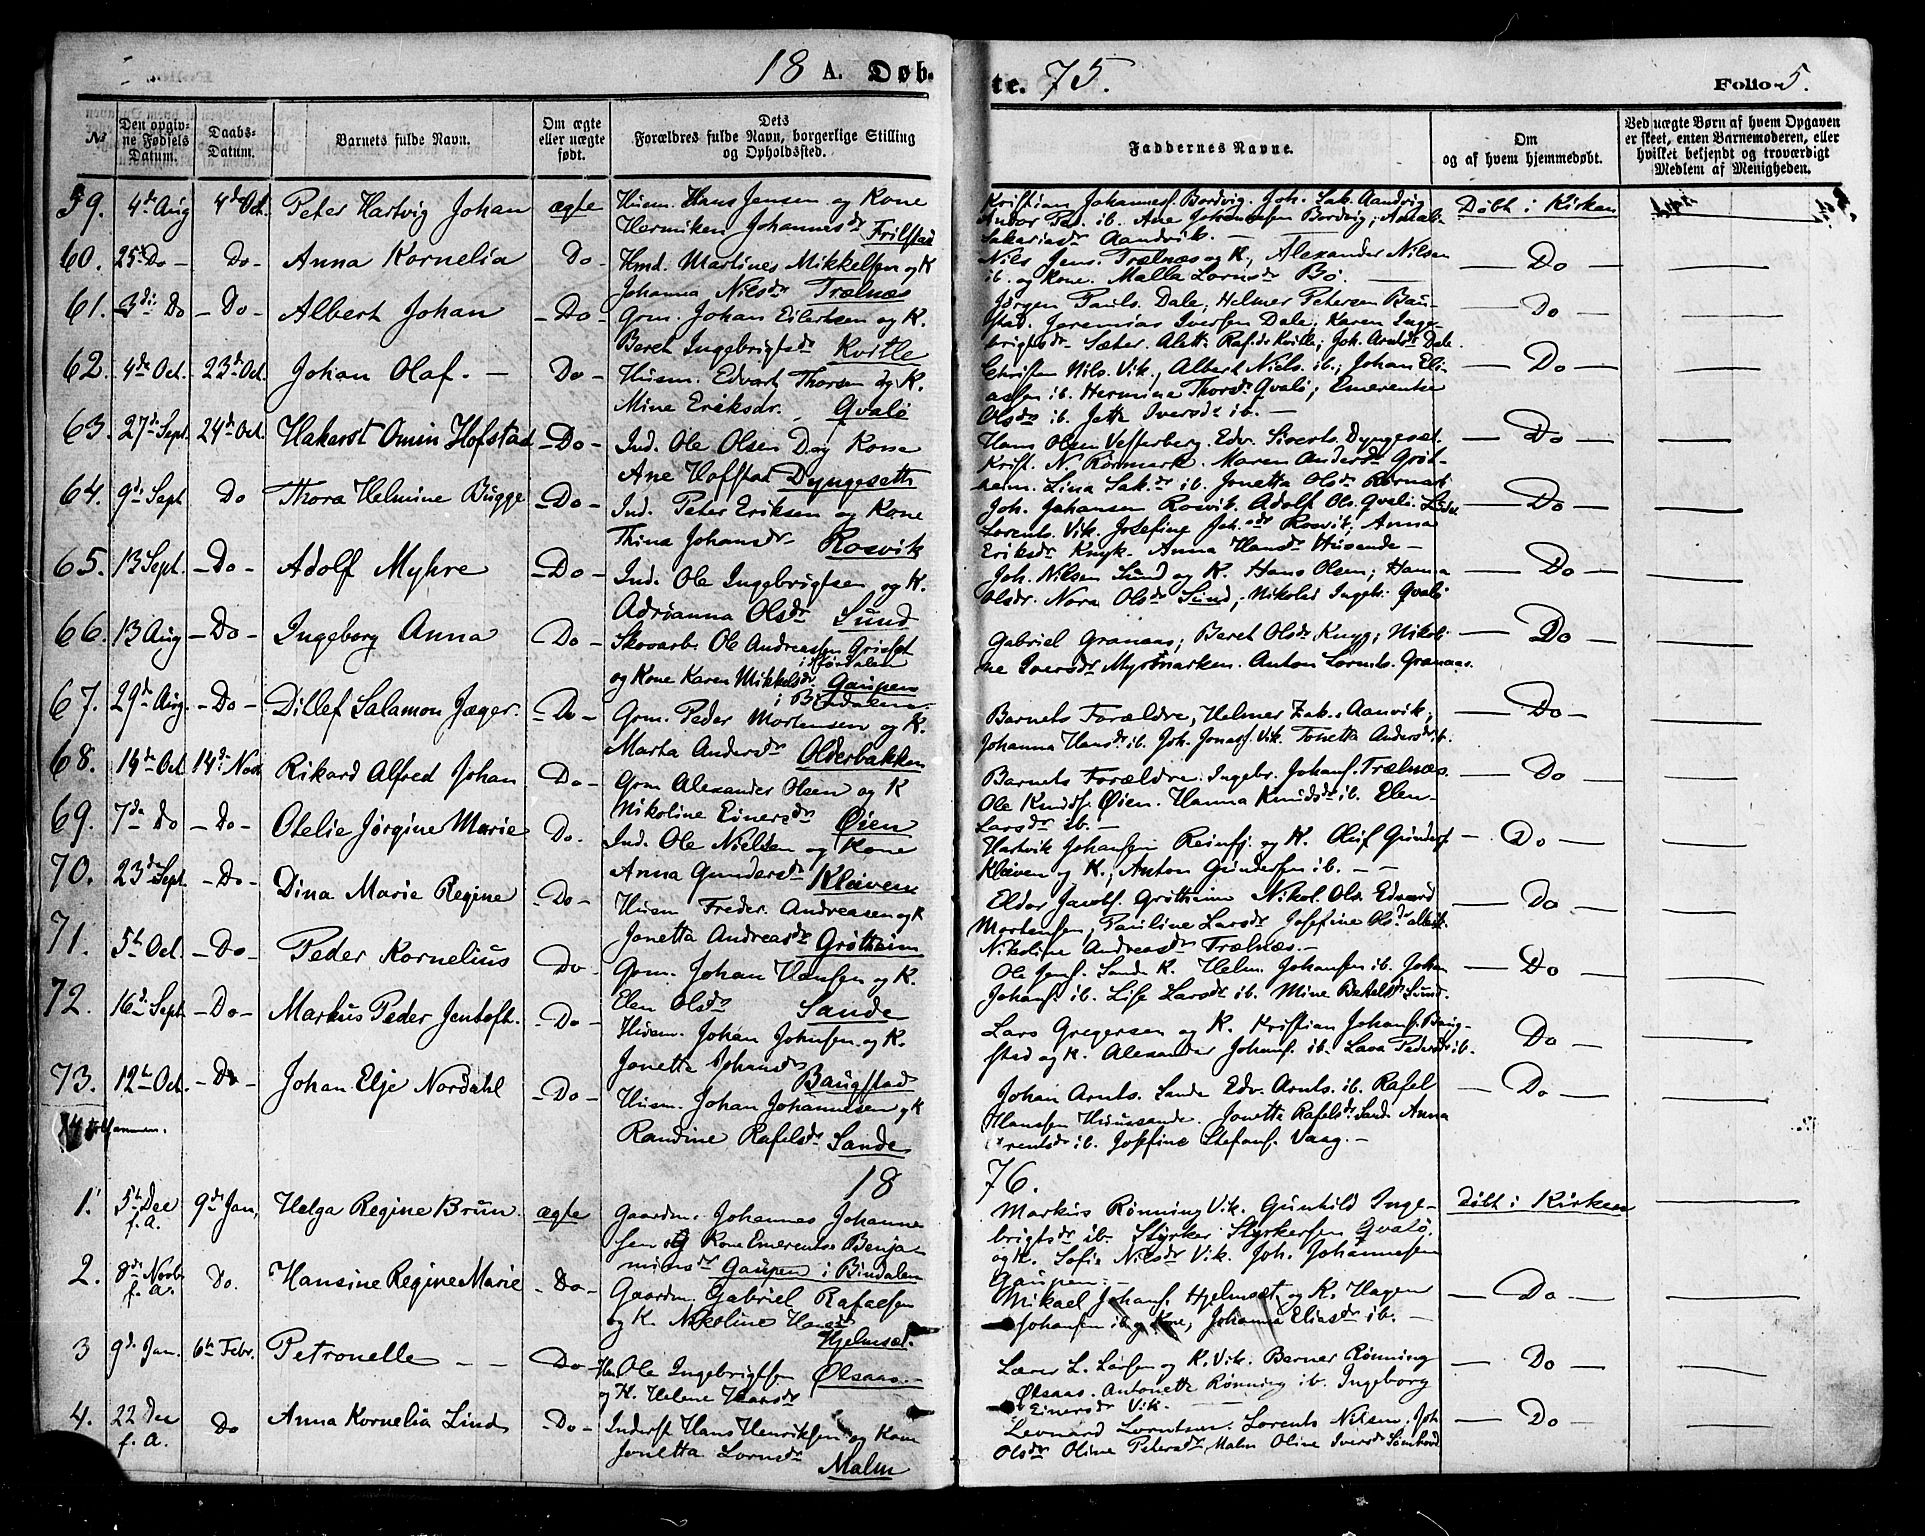 18 A. Døb-
te. 75.
Folio 5.
№
Den opgiv-
ne Fødsels
Datum.
Daabs-
Datum.
Barnets fulde Navn.
Om ægte
eller uægte
født.
Dets
Forældres fulde Navn, borgerlige Stilling
og Opholdssted.
Faddernes Navne.
Om
og af hvem hjemmedøbt.
Ved uægte Børn af hvem Opgaven
er skeet, enten Barnemoderen, eller
hvilket bekjendt og troværdigt
Medlem af Menigheden.
59. 4de Aug 4de Oct. Peter Hartvig Johan ægte
Husm. Hans Jensen og Kone
Hermiken Johannesdr Frilstad
Kristian Johannesf. Bordvig. Joh. Sak. Aandvig
ib. Ane Johannesen Bordvig; Amal.
Sakariasdr Aandvik. —
Døbt i Kirken
60. 25de Do — Do — Anna Kornelia Do —
Hmd. Martines Mikkelsen og K
Johanna Nilsdr Trælnæs
Nils Jens. Trælnæs og K, Alexander Nilsen
ib. og Kone. Malla Lornsdr Bø. —
— Do —
61. 3die Do — Do — Albert Johan — Do —
Grm. Johan Eilertsen og K.
Beret Ingebrigtsdr Kvitle
Jørgen Pauls. Dale; Helmer Petersen Bau-
stad. Jeremias Iversen Dale; Karen Inge-
brigtsdr Sæter. Aletta Rafsdr Kvitle; Joh. Arntsdr Dale.
— Do —
62. 4de Oct. 23de Oct. Johan Olaf. — Do —
Husm. Edvart Thorsen og K.
Mine Eriksdr. Qvalø
Christen Nils. Vik, Albert Niels. ib.; Johan Eli-
assen ib. Hermine Thorsdr Qvalø; Emerentse
Olsdr ib. Jette Iversdr ib. —
— Do —
63. 27de Sept. 24de Oct. Hakarst Omin Hofstad — Do —
Ind. Ole Olsen Dag Kone
Ane Hofstad Dyngeseth
Hans Olsen Vesterberg. Edv. Siverts. Dyngeset.
Krist. N. Rørmark. Maren Andersdr Grøt-
heim. Lina Sak.dr ib. Jonetta Olsdr Rørmark
— Do —
64. 9de Sept Do Thora Helmine Bugge — Do —
Ind. Peter Eriksen og Kone
Thina Johansdr Rosvik
Joh. Johansen Rosvik. Adolf Ols. Qvalø.
Lorents. Vik. Josefine Joh.sdr Rosvik; Anna
Eriksdr Knyk. Anna Hansdr Husende —
— Do —
65. 13 Sept. — Do — Adolf Myhre — Do —
Ind. Ole Ingebrigtsen og K.
Adrianna Olsdr Sund
Joh. Nilsen Sund og K. Hans Olsen; Hanna
Olsdr. Nora Olsdr Sund; Nikolai Ingeb. Qvalø
— Do —
66. 13 Aug — Do — Ingeborg Anna Do —
Skovarb. Ole Andreassen
og Kone Karen Mikkelsdr. Gaupen
i Bindalen
Gabriel Granaas; Beret Olsdr Knyg; Nikol-
ne Iversdr Myrtmarken. Anton Lorents. Granaas.
— Do —
67. 29de Aug. — Do — Dillef Salamon Jæger. — Do —
Grm. Peder Mortensen og K.
Marta Andersdr Olderbakken
Barnets Forældre, Helmer Zak. Aanvik;
Johanna Hansdr ib. Joh. Jonasf. Vik. Tonetta Andersdr ib.
— Do —
68. 14de Oct 14de Nov Rikard Alfred Johan Do —
Grm Alexander Olsen og K
Nikoline Einersdr Øien
Barnets Forældre. Ingebr. Johanf. Trælnæs.
Ole Knudsf. Øien. Hanna Knudsdr ib. Elen
Larsdr ib. —
— Do —
69. 7de Do — Do — Otelie Jørgine Marie Do.
Ind. Ole Nielsen og Kone
Anna Gundersdr Kleiven
Hartvik Johansen Reinfj. og K. Oluf Gundersf.
Kleiven og K., Anton Gundersen ib. — —
— Do —
70. 23de Sept. — Do — Dina Marie Regine — Do —
Husm Freder. Andreasen og K
Jonetta Andreasdr Grøtheim
Eldor Jacobf. Grøtheim Nikol. Ols. Edvard
Mortensen, Pauline Larsdr Josefine Olsdr
Nikoline Andreasdr Trælnæs. —
— Do —
71. 5te Oct. — Do — Peder Kornelius Do —
Grm. Johan Hansen og K.
Elen Olsdr Sande
Ole Jensf. Sande K. Helm. Johansen ib. Johan
Johansf. ib. Lise Larsdr ib. Mine Sund.
— Do —
72. 16de Sept — Do — Markus Peder Jentoft. — Do —
Husm. Johan Johnsen og K.
Jonetta Johansdr Baugstad
Lars Gregersen og K. Kristian Johansf. Baug-
stad og K. Alexander Johansf. ib. Lava Pedersdr ib.
— Do —
73. 12te Oct. — Do — Johan Elje Nordahl — Do —
Husm. Johan Johannesen og K
Randine Rafelsdr Sande
Johan Arnts. Sande Edv. Arnts. ib. Rafel
Hanssen Hiduussande. Jonetta Rafelsdr Sand. Anna
ib. Josefine Stefansf. Vaag. —
— Do —
18
76.
1. 5te Dec f. A. 9de Jan, Helga Regine Brun. ægte
Gaardm. Johannes Johanne
sen og Kone Emerentse Benja-
minsdr Gaupen i Bindalen
Markus Rønning Vik. Gunhild Inge-
brigtsdr ib. Styrker Styrkersen Qvalø.
og K. Sofie Nilsdr Vik. Joh. Johannesen
Gaupen. —
døbt i Kirken
2. 8de Novb f. A. Do. Hansine Regine Marie — Do —
Gaardm. Gabriel Rafaelsen
og K. Nikoline Hansdr
Hjelmset.
Mikael Johansf. Hjelmset og K. Hagen
Johansen ib og Kone, Johanna Eliasdr ib. —
— Do —
3 9de Jan. 6te Febr. Petronelle — — Do —
Ole Ingebrigtsen Ølsaas. —
og K. Helene Hansdr
Lærer L. Larsen og K. Vik. Berner Rønning
Ølsaas. Antonette Rønning ib. Ingeborg
Einersdr Vik. —
— Do —
4. 22 Dec f. A. Do Anna Kornelia Lind Do —
Inderst Hans Henriksen og Kone
Jonetta Lornsdr
Malm
Leonard Lorntsen. Lorents Nilsen. Joh
Olsdr Oline Petersdr Malm Oline Iversdr
— Do —